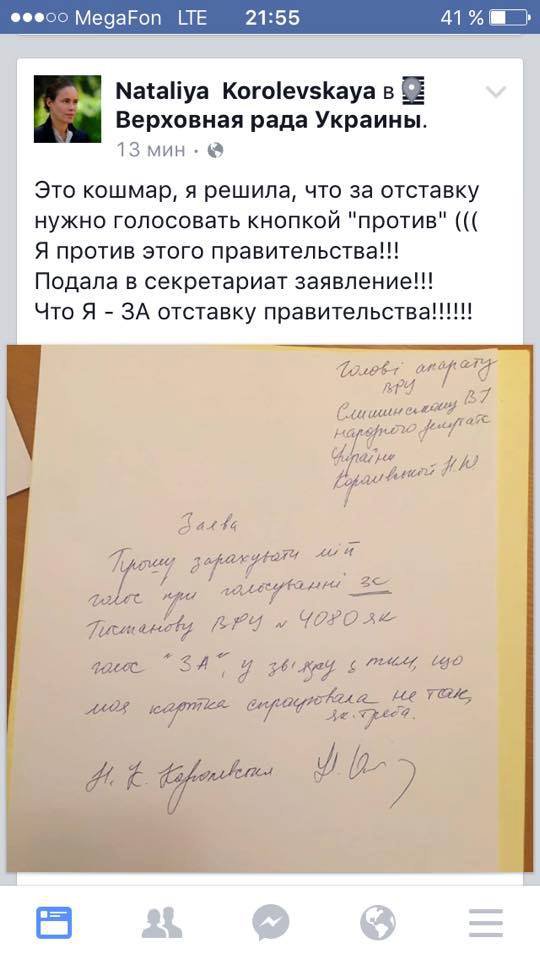 MegaFon LTE 21:55 41 %
Nataliya Korolevskaya в
Верховная рада Украины.
13 мин ·
Это кошмар, я решила, что за отставку
нужно голосовать кнопкой "против" (((
Я против этого правительства!!!
Подала в секретариат заявление!!!
Что Я - ЗА отставку правительства!!!!!!
Голові апарату
ВРУ
народного депутата
України
Королевської Н.Ю
Заява
Прошу зарахувати мій
голос при голосуванні за
Постанову ВРУ № 4080 як
голос "ЗА", у звязку з тим, що
моя картка спрацювала не так,
як треба.
Королевская